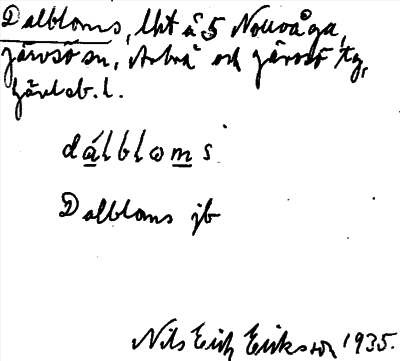 Dalbloms, lht å 5 Norrvåga,
Järvsö sn, Arbrå och Järvsö tg,
Gävleb. l.
dálbloms
Dalbloms jb
Nils Erik Eriksson 1935.